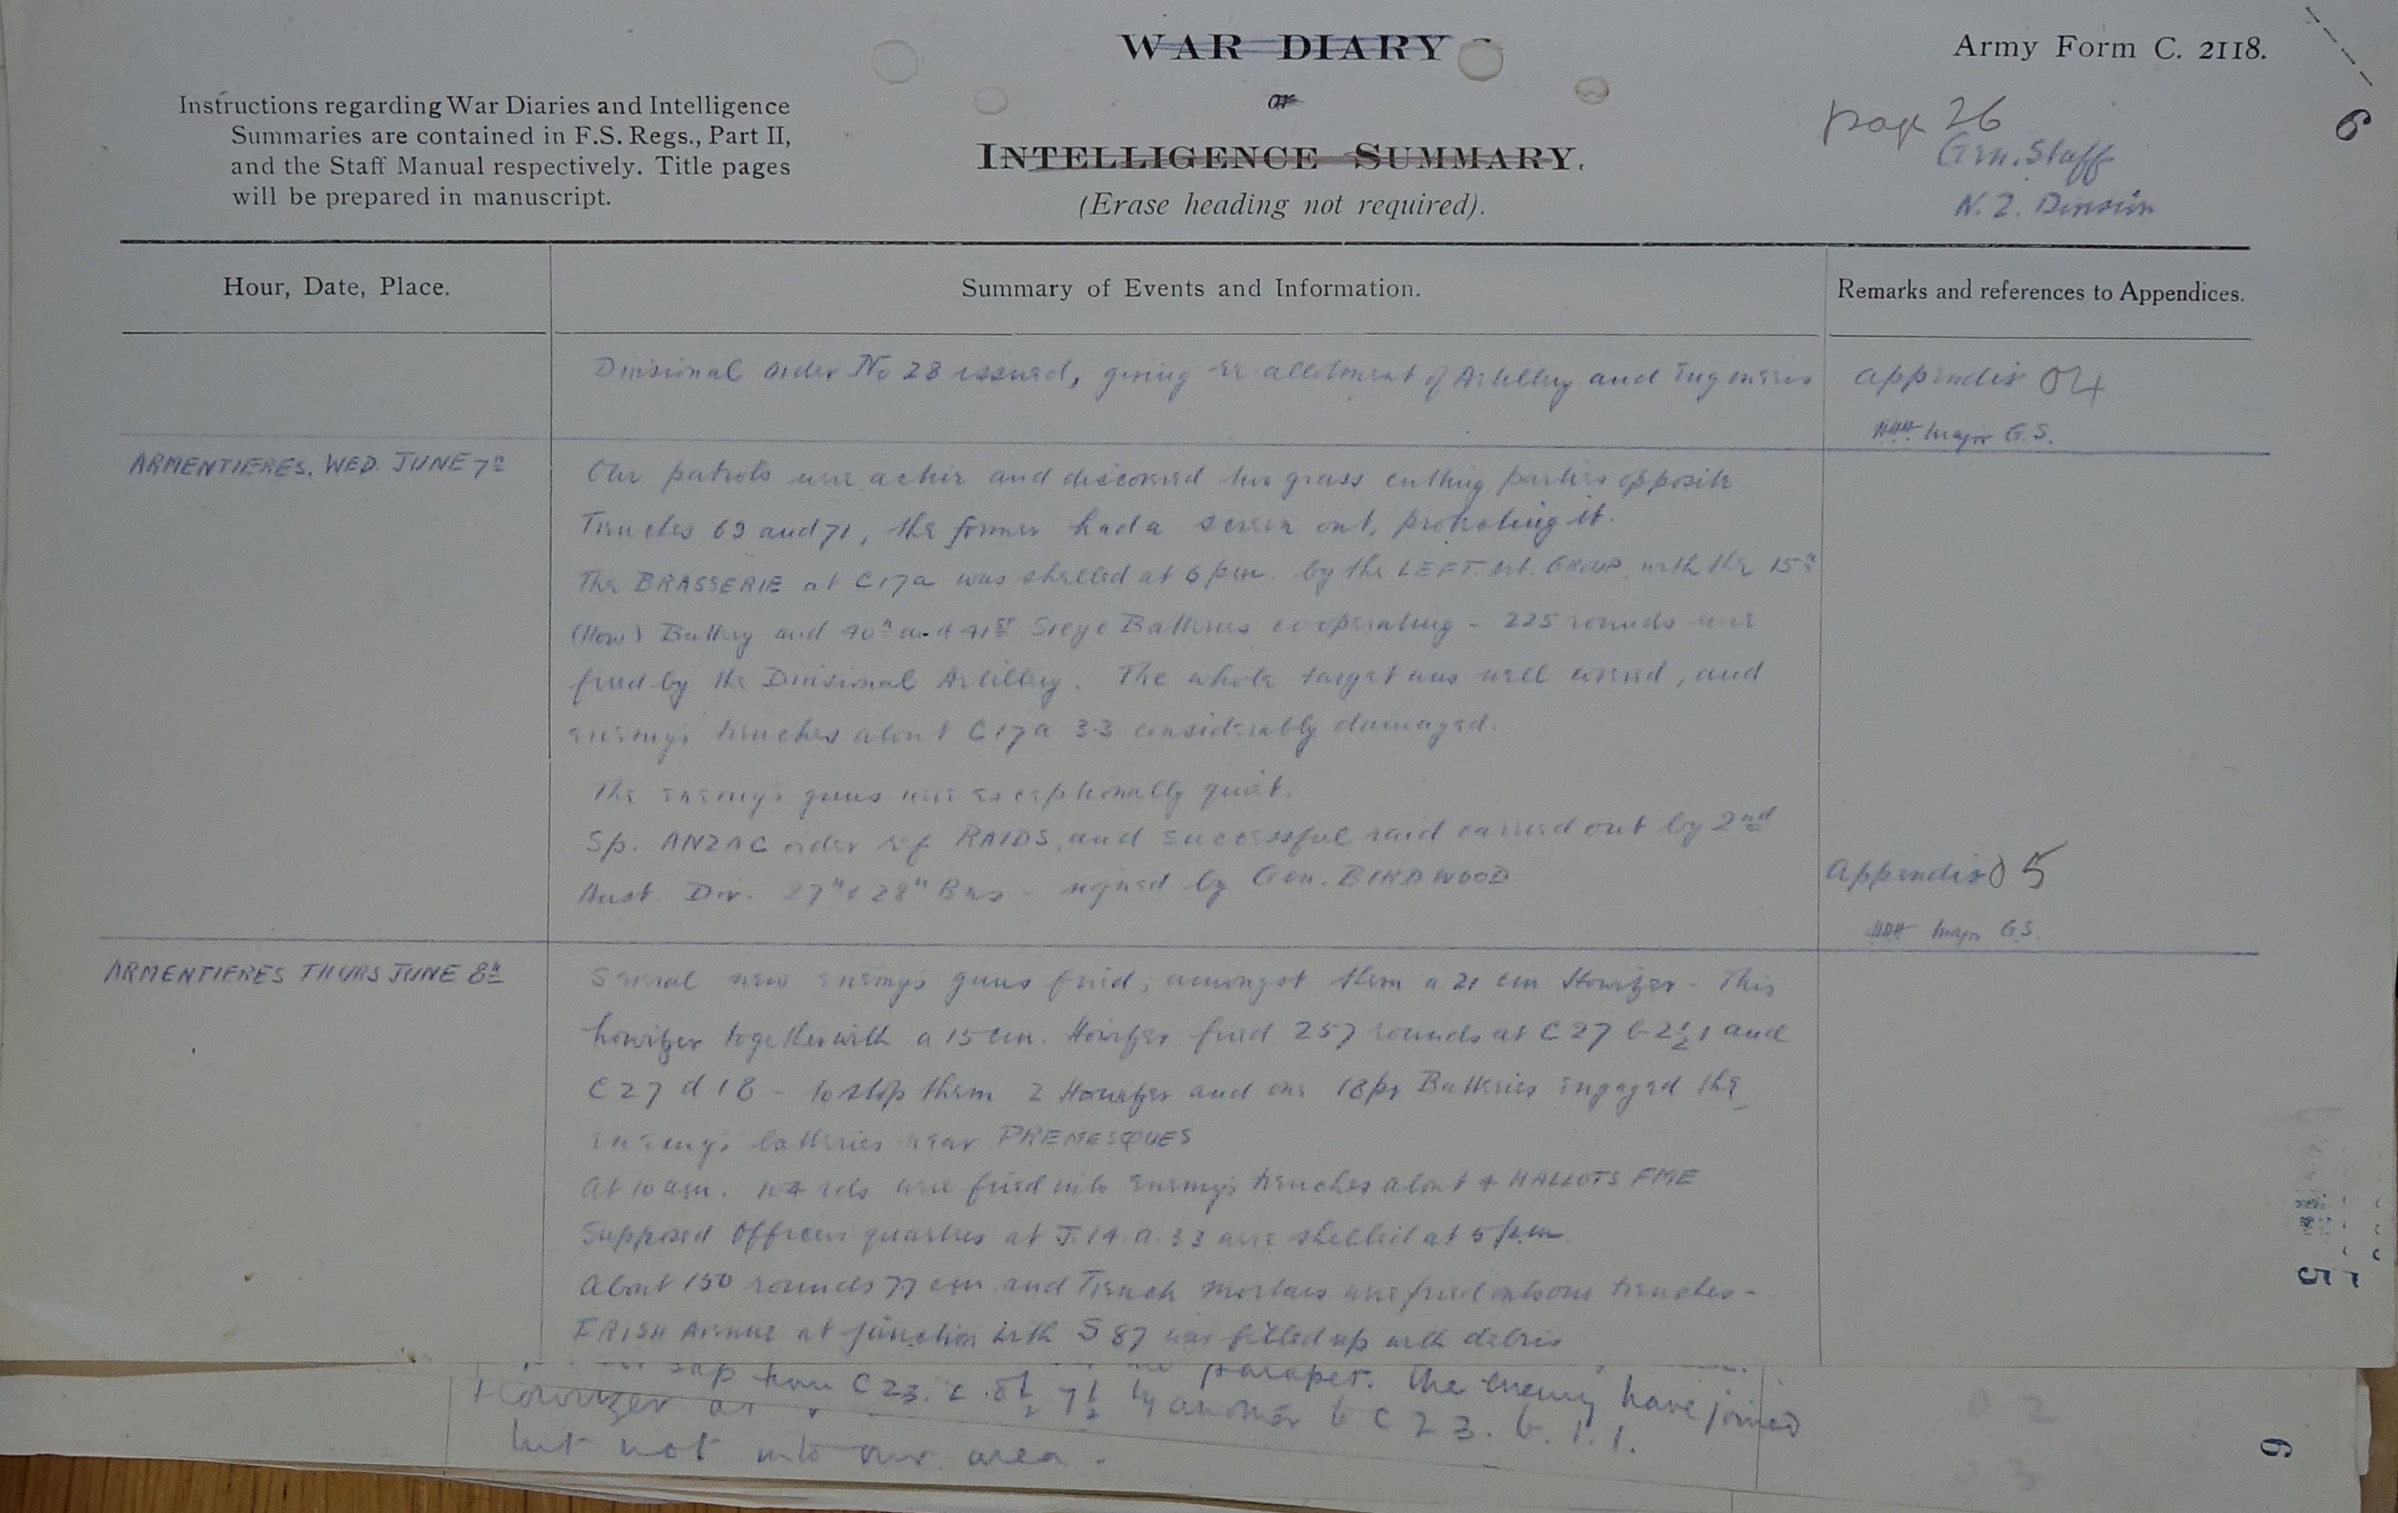 WAR DIARY
or
INTELLIGENCE SUMMARY.
(Erase heading not required).
Army Form C. 2118.
Instructions regarding War Diaries and Intelligence
Summaries are contained in F.S. Regs., Part II,
and the Staff Manual respectively. Title pages
will be prepared in manuscript.
page 26
Gen. Staff
N. Z. Division
6
Hour, Date, Place.
Summary of Events and Information.
Remarks and references to Appendices.
Divisional order No 28 issued, giving re allotment of Artillery and Engineers
Appendix 04
Major G.S.
ARMENTIERES. WED. JUNE 7th
Our patrols were active and discovered two grass cutting parties opposite
Trenches 69 and 71, the former had a screen out, protecting it.
The BRASSERIE at C17a was shelled at 6 pm. by the LEFT. Art. GROUP. with the 15th
(How) Battery and 40th and 41st Siege Batteries cooperating - 225 rounds were
fired by the Divisional Artillery. The whole target was well covered, and
enemy's trenches about C17a 3.3 considerably damaged.
The enemy's guns were exceptionally quiet.
Sp. ANZAC order ref RAIDS, and successful raid carried out by 2nd
Aust. Div. 27th & 28th Bns - signed by Gen. BIRDWOOD
Appendix 05
Major G.S.
ARMENTIERES THURS JUNE 8th
Several new enemy's guns fired, amongst them a 21 cm Howitzer - This
howitzer together with a 15 cm. Howitzer fired 257 rounds at C27 b 2½ 1 and
C27 d 18 - to stop them 2 Howitzer and one 18pr Batteries engaged the
enemy's batteries near PREMESQUES
At 10 am. 104 rds were fired into enemy's trenches about 4 HALLOTS FME
Supposed Officers quarters at J.14.a.33 were shelled at 5 pm.
About 150 rounds 77 cm and Trench mortars were fired onto our trenches -
IRISH Avenue at junction with S 87 was filled up with debris
5
sap from C 23. c. 8½ 7½ by another to C 23. b. 1.1.
parapet. The enemy have joined
Howitzer
but not into our area.
02
6